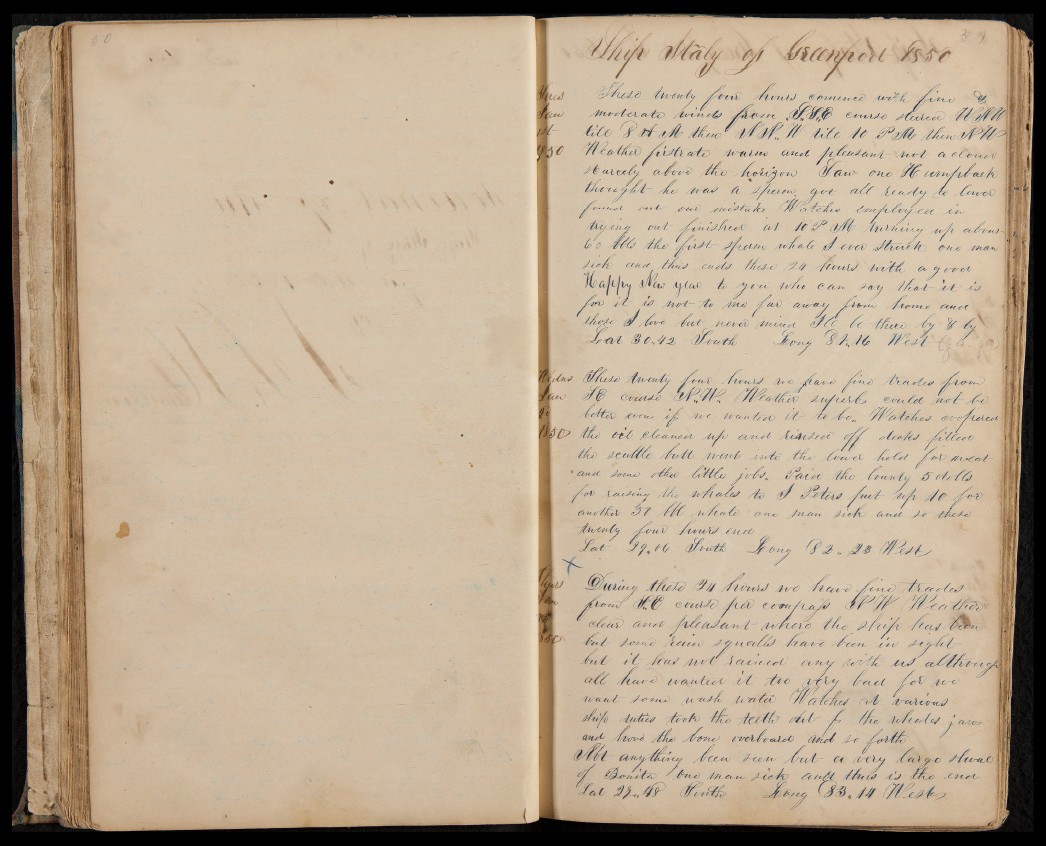 60
Ship Italy of Greenport 1850
These twenty four hours comence with fine &
moderate winds from S.S.E course steered
till 8 A M then N N. W till 10 P M then
Weather firstrate warm and pleasant not a cloud
scarcely above the horizon Saw one Humpback
thought he was a sperm, got all ready to lower
found out our mistake Watches employed in
trying out finished at 10 P M turning up about
60 bbls the first sperm whale I ever struck one man
sick and thus ends these 24 hours with a good
Happy New year to you who can say that it is
for it is not to me far away from home and
those I love but never mind I'll be there by & by
Lat 30.42 South Long 81.16 West
Jan
1850
These twenty four hours we have fine trades from
SE course N.W. Weather superb could not be
better even if we wanted it to be. Watches coopered
the oil cleaned up and rinsed off decks filled
the scuttle butt went into the lower hold for meat
and some other little jobs. Paid the bounty 5 dolls
for raising the whales to J Peters put up 10 for
another 50 bbl whale one man sick and so these
twenty four hours end
Lat 29.06 South Long 82.23 West
During these 24 hours we have fine trades
from S.E course per compass N W Weather
clear and pleasant where the ship has been
but some rain squalls have been in sight
but it has not rained any with us although
all have wanted it too very bad for we
want some wash water Watches at various
ship duties took the teeth out of the whales jaws
and hove the bone overboard and so forth
Not anything been seen but a very large shoal
of Bonita One man sick and thus is the end
Lat 27.48 South Long 83.14 West